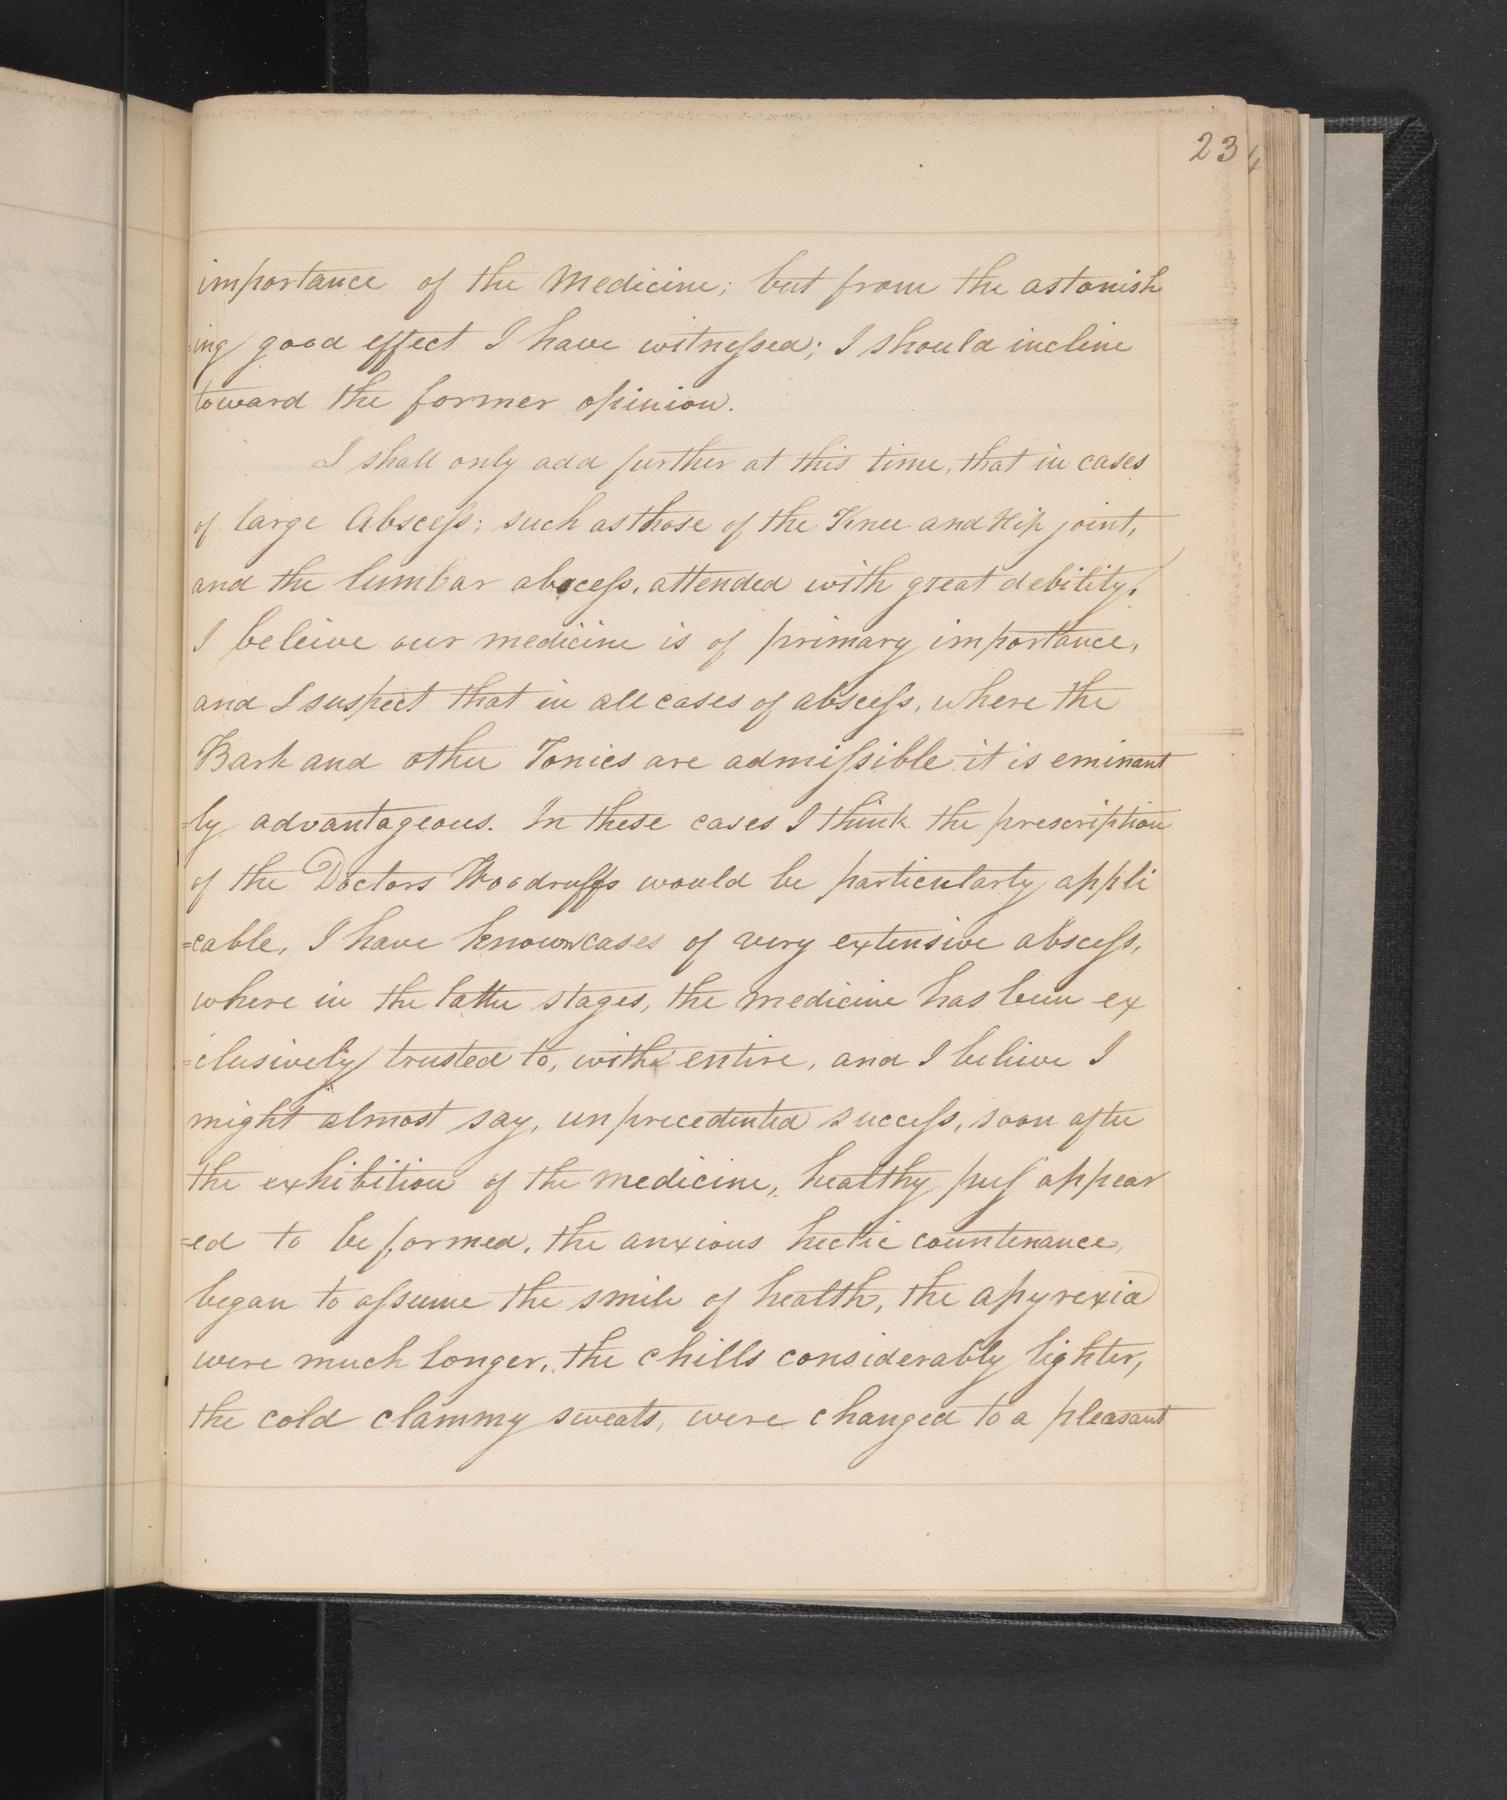 23
importance of the Medicine; but from the astonish
=ing good effect I have witnessed; I should incline
toward the former opinion.
I shall only add further at this time, that in cases
of large Abscess; such as those of the Knee and Hip joint,
and the lumbar abscess, attended with great debility,
I beleive our medicine is of primary importance,
and I suspect that in all cases of abscess, where the
Bark and other Tonics are admissible it is eminant
=ly advantageous. In these cases I think the prescription
of the Doctors Woodruffs would be particularly appli
=cable, I have known cases of very extensive abscess,
where in the latter stages, the medicine has been ex
=clusively trusted to, with entire, and I believe I
might almost say, unprecedented success, soon after
the exhibition of the medicine, healthy pus appear
=ed to be formed, the anxious hectic countenance,
began to assume the smile of health, the apyrexia
were much longer, the chills considerably lighter,
the cold clammy sweats, were changed to a pleasant